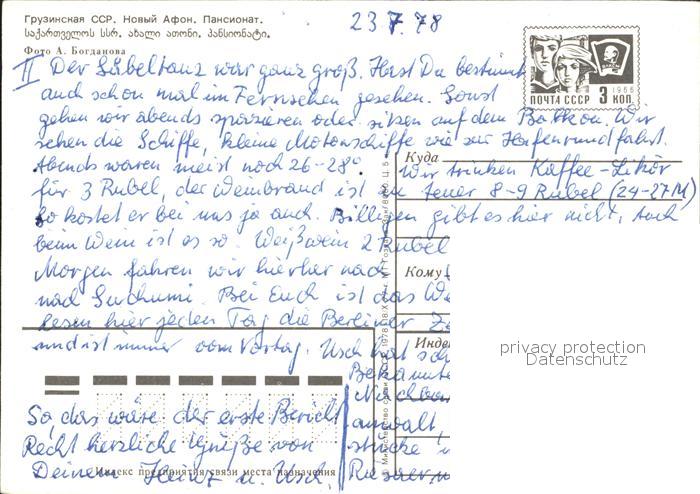 Грузинская ССР. Новый Афон. Пансионат.
საქართველოს სსრ. ახალი ათონი. პანსიონატი.
Фото А. Богданова
23.7.78
ПОЧТА СССР 3 КОП.
1966
ВЛКСМ
II Der Säbeltanz war ganz groß. Hast Du bestimmt
auch schon mal im Fernsehen gesehen. Sonst
gehen wir abends spazieren oder sitzen auf dem Balkon. Wir
sehen die Schiffe, kleine Motorschiffe wie zur Hafenrundfahrt.
Abends waren meist noch 26-28°.
Куда
Wir trinken Kaffee-Likör
für 3 Rubel, der Weinbrand ist teuer 8-9 Rubel (24-27M)
So kostet er bei uns ja auch. Billigen gibt es hier nicht, auch
beim Wein ist es so. Weißwein 2 Rubel
Morgen fahren wir hierher nach
Кому
nach Suchumi. Bei Euch ist das We
lesen hier jeden Tag die Berliner Z
Инде
und ist immer vom Vortag. Usch hat sch
Bekannte
Nachbar
anwalt,
stücke
So, das wäre der erste Bericht
Recht herzliche Grüße von
Deinem Heinz u. Usch.
Индекс предприятия связи места назначения
© Министерство связи СССР. 1978
privacy protection
Datenschutz